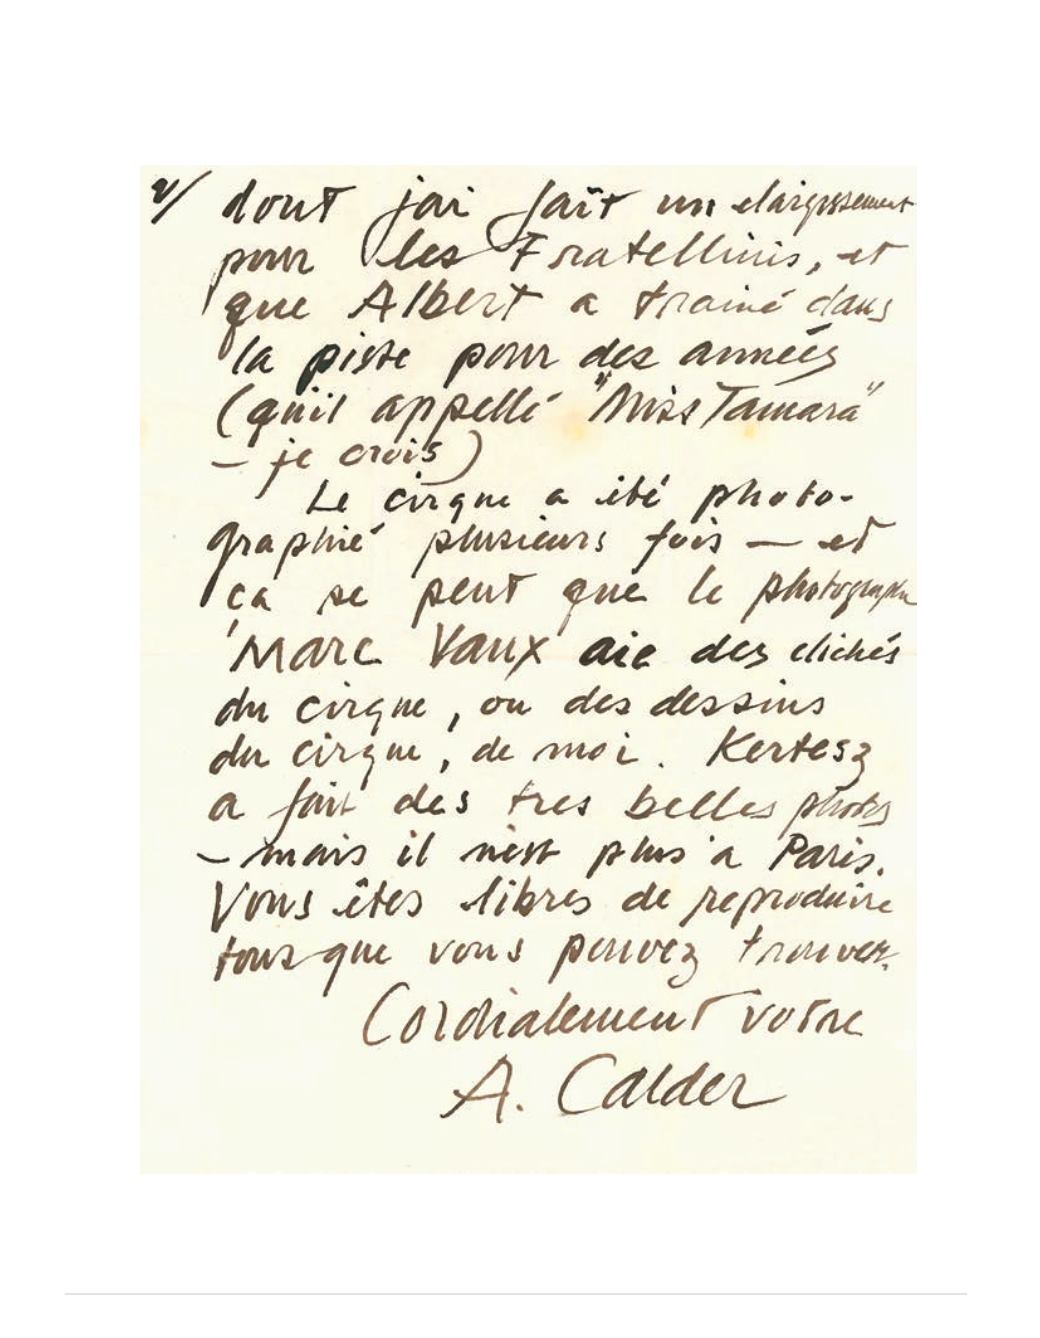 2/ dont j'ai fait un elargissement
pour les Fratellinis, et
que Albert a trainé dans
la piste pour des années
(qu'il appellé "Miss Tamara"
– je crois)
Le cirque a été photo-
graphié plusieurs fois — et
ça se peut que le photographe
Marc Vaux aie des clichés
du cirque, ou des dessins
du cirque, de moi. Kertesz
a fait des tres belles photos
– mais il n'est plus à Paris.
Vous êtes libres de reproduire
tous que vous pouvez trouver.
Cordialement votre
A. Calder